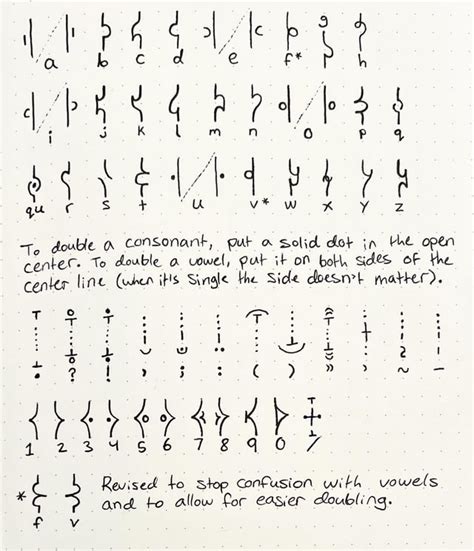 a b c d e f* g h
i j k l m n o p q
qu r s t u v* w x y z
To double a consonant, put a solid dot in the open
center. To double a vowel, put it on both sides of the
center line (when it's single the side doesn't matter).
. ? ! , ; : ( ) " ' ~ -
1 2 3 4 5 6 7 8 9 0 /
* Revised to stop confusion with vowels
and to allow for easier doubling.
f v